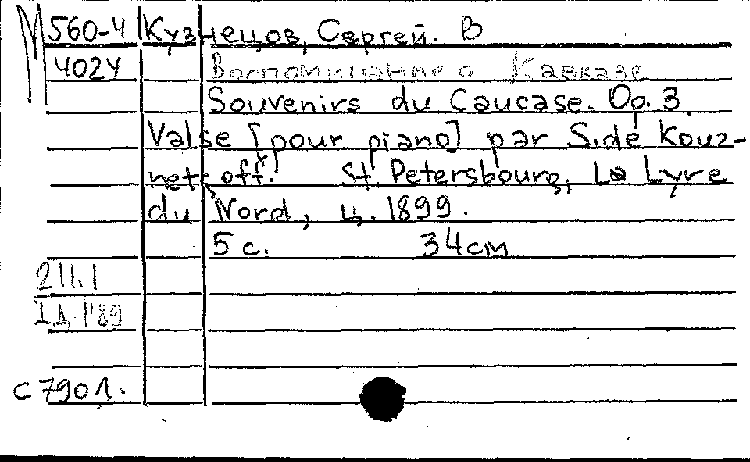 М 560-4 Кузнецов, Сергей. В
4024 Воспоминание о Кавказе
Souvenirs du Caucase. Op. 3.
Valse [pour piano] par S. de Kouz-
netzoff. St. Petersbourg, La Lyre
du Nord, ц. 1899.
5 с. 34 см
211.1
1 д. 1'89
с 790 л.